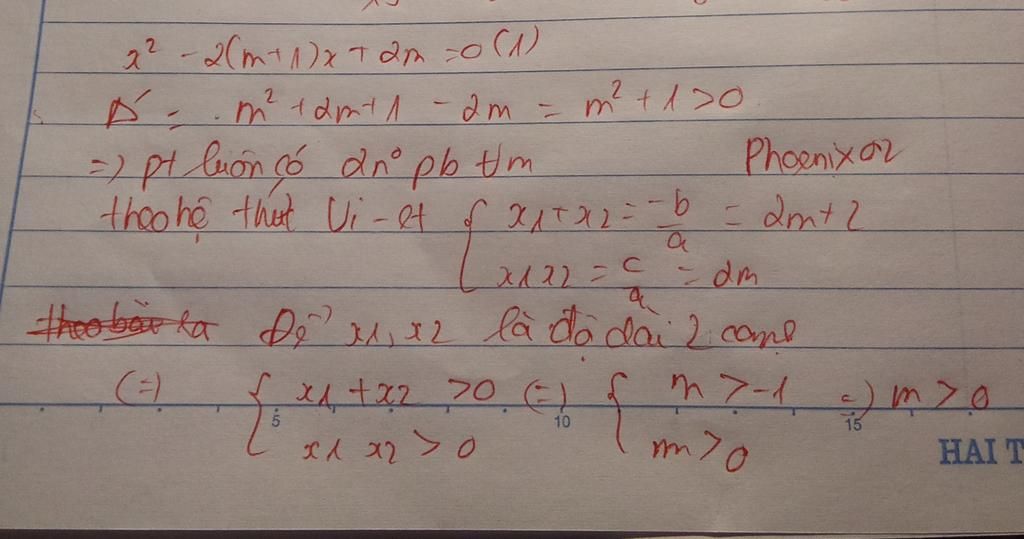 x² - 2(m+1)x + 2m = 0 (1)
Δ' = m² + 2m + 1 - 2m = m² + 1 > 0
=) pt luôn có 2n° pb ∀m
Phoenix02
theo hệ thứt Vi-et { x1 + x2 = -b/a = 2m + 2
x1 x2 = c/a = 2m
theo bài ra Để x1, x2 là độ dài 2 cạnh
(=) { x1 + x2 > 0 (=) { m > -1 =) m > 0
x1 x2 > 0 m > 0
5 10 15
HAI T